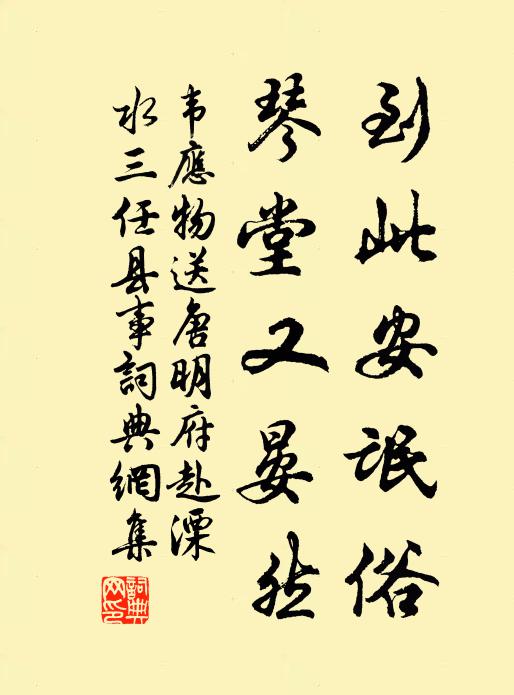 到此安氓俗
琴堂又晏然
韦應物送唐明府赴溧
水三任县事詞典網集
詞典網印